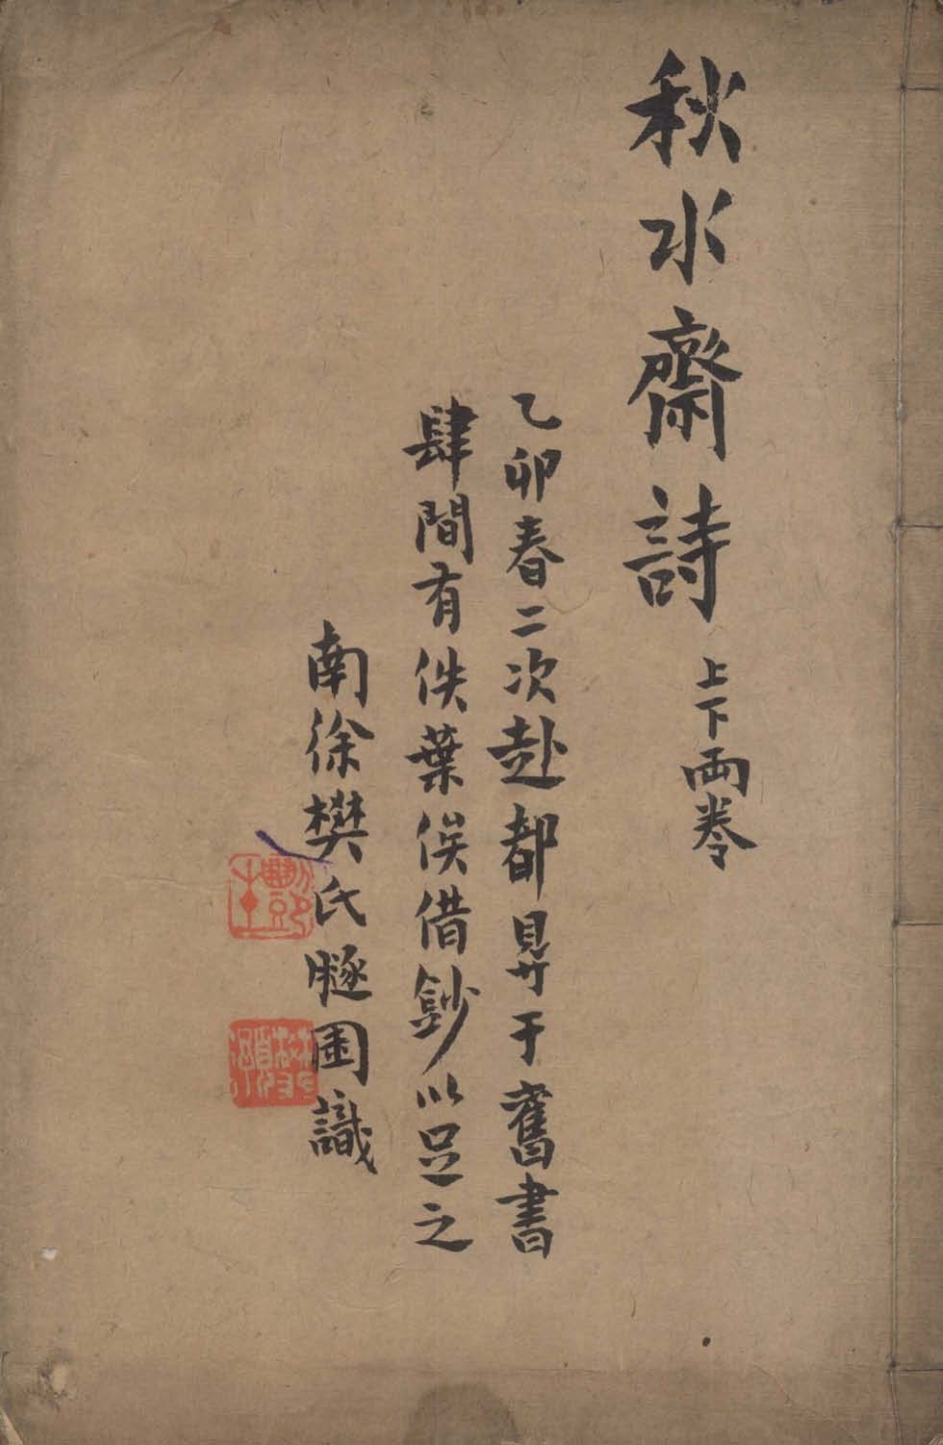 秋水齋詩
上下兩卷
乙卯春二次赴都見于舊書
肆間有佚葉俟借鈔以足之
南徐樊氏㒸國識